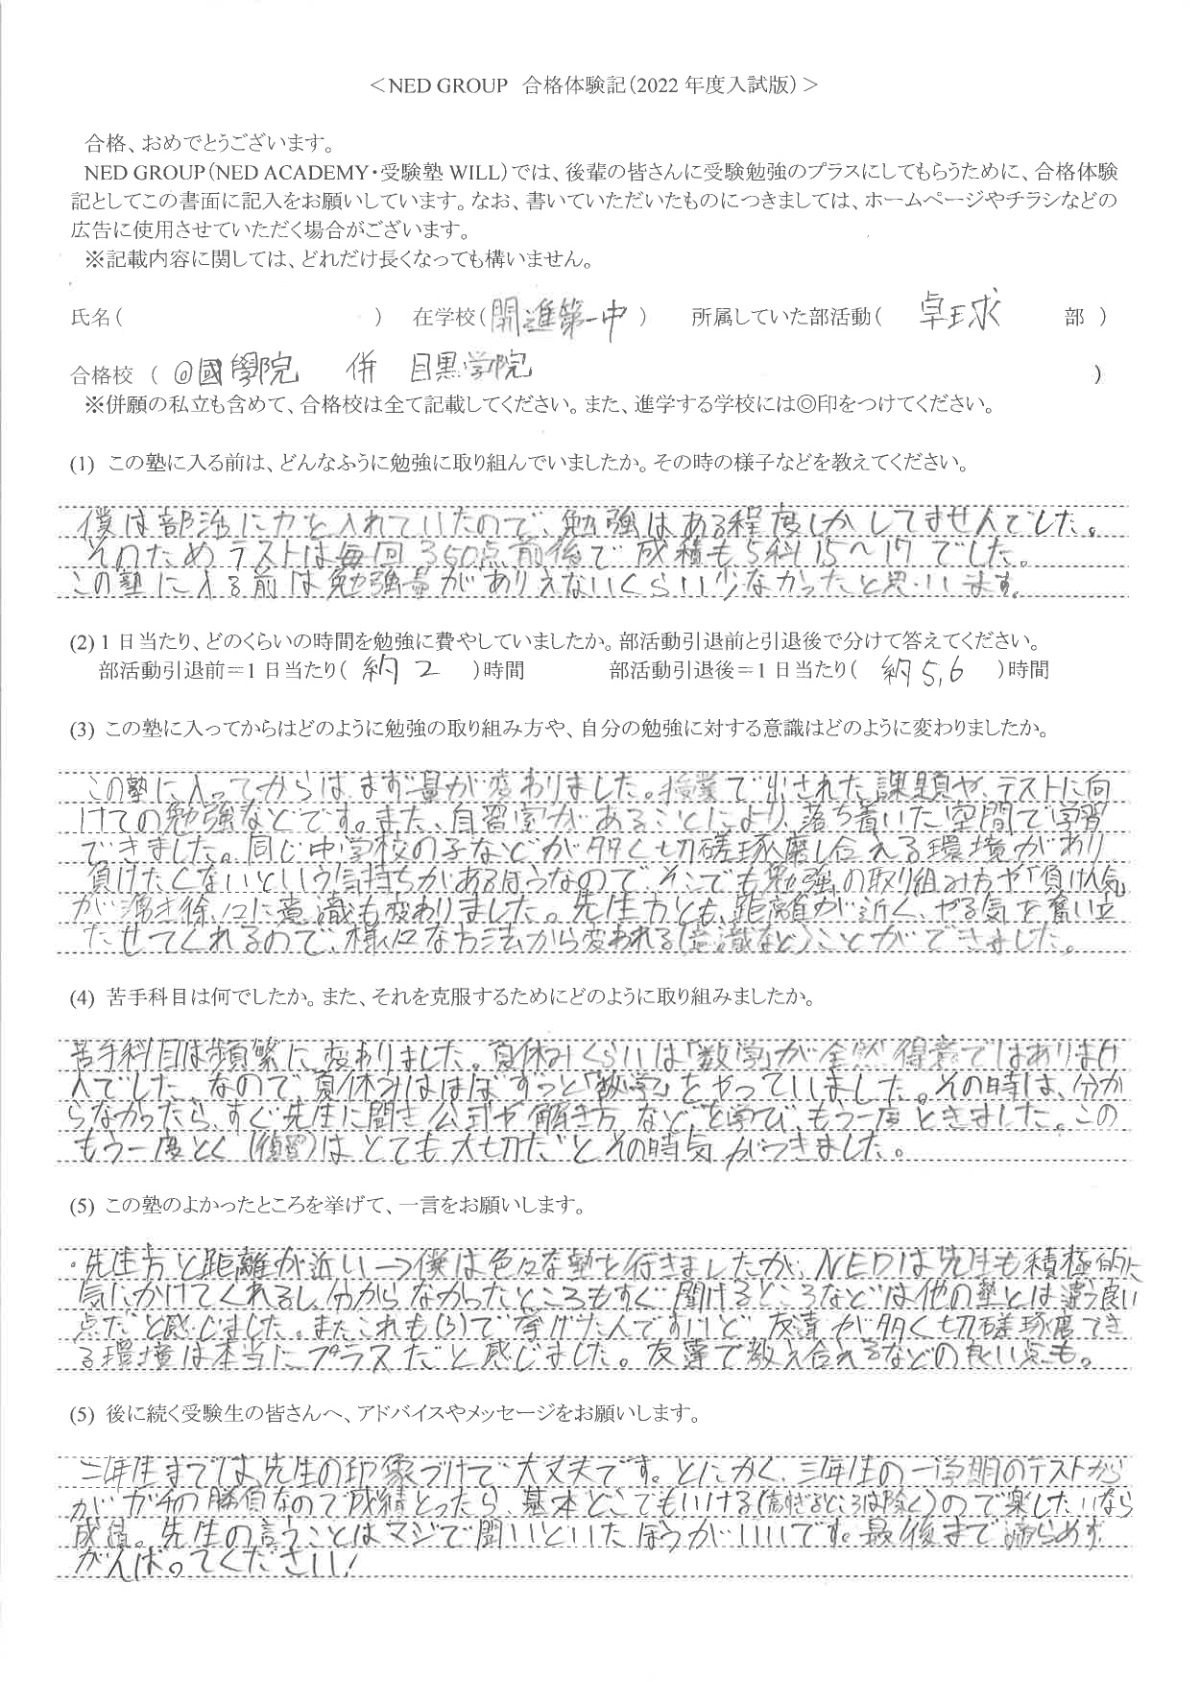 ＜NED GROUP 合格体験記（2022 年度入試版）＞
合格、おめでとうございます。
NED GROUP（NED ACADEMY・受験塾 WILL）では、後輩の皆さんに受験勉強のプラスにしてもらうために、合格体験
記としてこの書面に記入をお願いしています。なお、書いていただいたものにつきましては、ホームページやチラシなどの
広告に使用させていただく場合がございます。
※記載内容に関しては、どれだけ長くなっても構いません。
氏名（ ） 在学校（開進第一中） 所属していた部活動（ 卓球 部 ）
合格校 （ ◎國學院 併 目黒学院 ）
※併願の私立も含めて、合格校は全て記載してください。また、進学する学校には◎印をつけてください。
(1) この塾に入る前は、どんなふうに勉強に取り組んでいましたか。その時の様子などを教えてください。
僕は部活に力を入れていたので、勉強はある程度しかしてませんでした。
そのためテストは毎回350点前後で成積も5科15～17でした。
この塾に入る前は勉強量がありえないくらい少なかったと思います。
(2) 1 日当たり、どのくらいの時間を勉強に費やしていましたか。部活動引退前と引退後で分けて答えてください。
部活動引退前＝1 日当たり（ 約2 ）時間 部活動引退後＝1 日当たり（ 約5,6 ）時間
(3) この塾に入ってからはどのように勉強の取り組み方や、自分の勉強に対する意識はどのように変わりましたか。
この塾に入ってからは、まず量が変わりました。授業で出された課題や、テストに向
けての勉強などです。また、自習室があることにより、落ち着いた空間で学習
できました。同じ中学校の子などが多く切磋琢磨し合える環境があり
負けたくないという気持ちがあるほうなので、そこでも勉強の取り組み方や「負けん気」
が湧き徐々に意識も変わりました。先生方とも、距離が近く、やる気を奮い立
たせてくれるので、様々な方法から変われる（意識など）ことができました。
(4) 苦手科目は何でしたか。また、それを克服するためにどのように取り組みましたか。
苦手科目は頻繁に、変わりました。夏休みくらいは「数学」が全然得意ではありませ
んでした、なので、夏休みはほぼずっと「数学」をやっていました。その時は、分か
らなかったら、すぐ先生に聞き公式や解き方などを学び、もう一度ときました。この
もう一度とく（復習）はとても大切だとその時気がつきました。
(5) この塾のよかったところを挙げて、一言をお願いします。
・先生方と距離が近い→僕は色々な塾を行きましたが、NEDは先生も積極的に
気にかけてくれるし、分からなかったところもすぐ聞けるところなどは他の塾とは違う良い
点だと感じました。またこれも(3)で挙げたんですけど、友達が多く切磋琢磨でき
る環境は本当にプラスだと感じました。友達で教え合えるなどの良い点も。
(5) 後に続く受験生の皆さんへ、アドバイスやメッセージをお願いします。
二年生までは、先生の印象づけで、大丈夫です。とにかく、三年生の一学期のテストから
がガチの勝負なので成績とったら、基本どこでもいける（高すぎるところは除く）ので楽したいなら
成績。先生の言うことはマジで聞いといたほうがいいです。最後まで諦らめず
がんばってください！